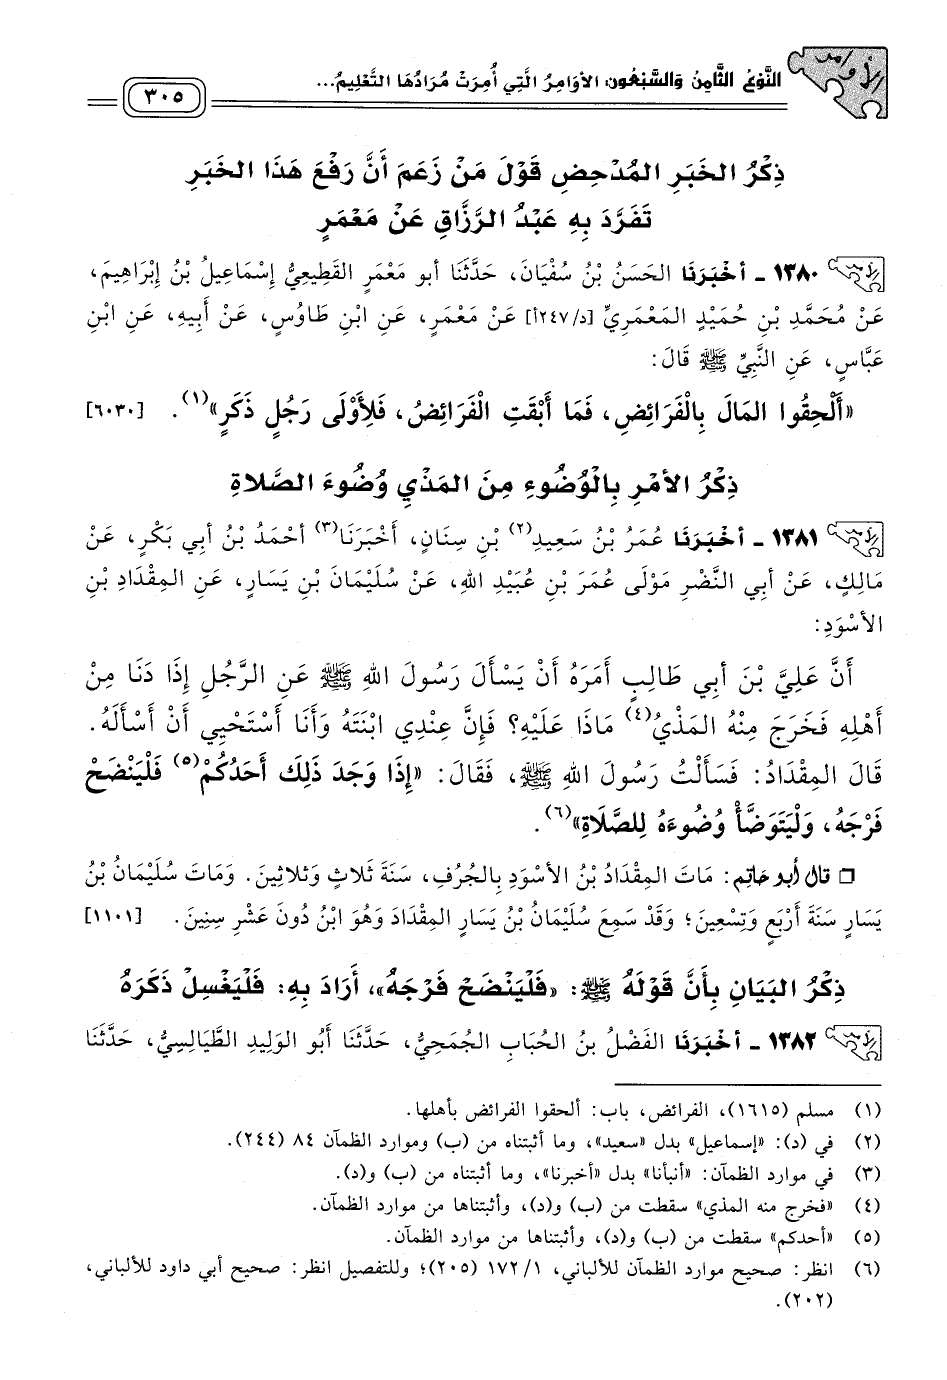 الأوامر
النَّوْعُ الثَّامِنُ وَالسَّبْعُونَ: الأَوَامِرُ الَّتِي أُمِرَتْ مُرَادُهَا التَّعْلِيمُ...
٣٠٥
ذِكْرُ الخَبَرِ المُدْحِضِ قَوْلَ مَنْ زَعَمَ أَنَّ رَفْعَ هَذَا الخَبَرِ
تَفَرَّدَ بِهِ عَبْدُ الرَّزَّاقِ عَنْ مَعْمَرٍ
١٣٨٠ ـ أَخْبَرَنَا الحَسَنُ بْنُ سُفْيَانَ، حَدَّثَنَا أبو مَعْمَرٍ القَطِيعِيُّ إِسْمَاعِيلُ بْنُ إِبْرَاهِيمَ،
عَنْ مُحَمَّدِ بْنِ حُمَيْدٍ المَعْمَرِيِّ [د/٢٤٧أ] عَنْ مَعْمَرٍ، عَنِ ابْنِ طَاوُسٍ، عَنْ أَبِيهِ، عَنِ ابْنِ
عَبَّاسٍ، عَنِ النَّبِيِّ ﷺ قَالَ:
«أَلْحِقُوا المَالَ بِالْفَرَائِضِ، فَمَا أَبْقَتِ الْفَرَائِضُ، فَلِأَوْلَى رَجُلٍ ذَكَرٍ»(١). [٦٠٣٠]
ذِكْرُ الأَمْرِ بِالْوُضُوءِ مِنَ المَذْيِ وُضُوءَ الصَّلَاةِ
١٣٨١ ـ أَخْبَرَنَا عُمَرُ بْنُ سَعِيدِ(٢) بْنِ سِنَانٍ، أَخْبَرَنَا(٣) أحْمَدُ بْنُ أبي بَكْرٍ، عَنْ
مَالِكٍ، عَنْ أَبِي النَّضْرِ مَوْلَى عُمَرَ بْنِ عُبَيْدِ اللهِ، عَنْ سُلَيْمَانَ بْنِ يَسَارٍ، عَنِ المِقْدَادِ بْنِ
الأَسْوَدِ:
أَنَّ عَلِيَّ بْنَ أَبِي طَالِبٍ أَمَرَهُ أَنْ يَسْأَلَ رَسُولَ اللهِ ﷺ عَنِ الرَّجُلِ إِذَا دَنَا مِنْ
أَهْلِهِ فَخَرَجَ مِنْهُ المَذْيُ(٤) مَاذَا عَلَيْهِ؟ فَإِنَّ عِنْدِي ابْنَتَهُ وَأَنَا أَسْتَحْيِي أَنْ أَسْأَلَهُ.
قَالَ المِقْدَادُ: فَسَأَلْتُ رَسُولَ اللهِ ﷺ، فَقَالَ: «إِذَا وَجَدَ ذَلِكَ أَحَدُكُمْ(٥) فَلْيَنْضَحْ
فَرْجَهُ، وَلْيَتَوَضَّأْ وُضُوءَهُ لِلصَّلَاةِ»(٦).
❑ قال أبو حاتم: مَاتَ المِقْدَادُ بْنُ الأَسْوَدِ بِالجُرُفِ، سَنَةَ ثَلاثٍ وَثَلاثِينَ. وَمَاتَ سُلَيْمَانُ بْنُ
يَسَارٍ سَنَةَ أَرْبَعٍ وَتِسْعِينَ؛ وَقَدْ سَمِعَ سُلَيْمَانُ بْنُ يَسَارٍ المِقْدَادَ وَهُوَ ابْنُ دُونَ عَشْرِ سِنِينَ. [١١٠١]
ذِكْرُ البَيَانِ بِأَنَّ قَوْلَهُ ﷺ: «فَلْيَنْضَحْ فَرْجَهُ»، أَرَادَ بِهِ: فَلْيَغْسِلْ ذَكَرَهُ
١٣٨٢ ـ أَخْبَرَنَا الفَضْلُ بنُ الحُبَابِ الجُمَحِيُّ، حَدَّثَنَا أَبُو الوَلِيدِ الطَّيَالِسِيُّ، حَدَّثَنَا
(١) مسلم (١٦١٥)، الفرائض، باب: ألحقوا الفرائض بأهلها.
(٢) في (د): «إسماعيل» بدل «سعيد»، وما أثبتناه من (ب) وموارد الظمآن ٨٤ (٢٤٤).
(٣) في موارد الظمآن: «أنبأنا» بدل «أخبرنا»، وما أثبتناه من (ب) و(د).
(٤) «فخرج منه المذي» سقطت من (ب) و(د)، وأثبتناها من موارد الظمآن.
(٥) «أحدكم» سقطت من (ب) و(د)، وأثبتناها من موارد الظمآن.
(٦) انظر: صحيح موارد الظمآن للألباني، ١/ ١٧٢ (٢٠٥)؛ وللتفصيل انظر: صحيح أبي داود للألباني،
(٢٠٢).